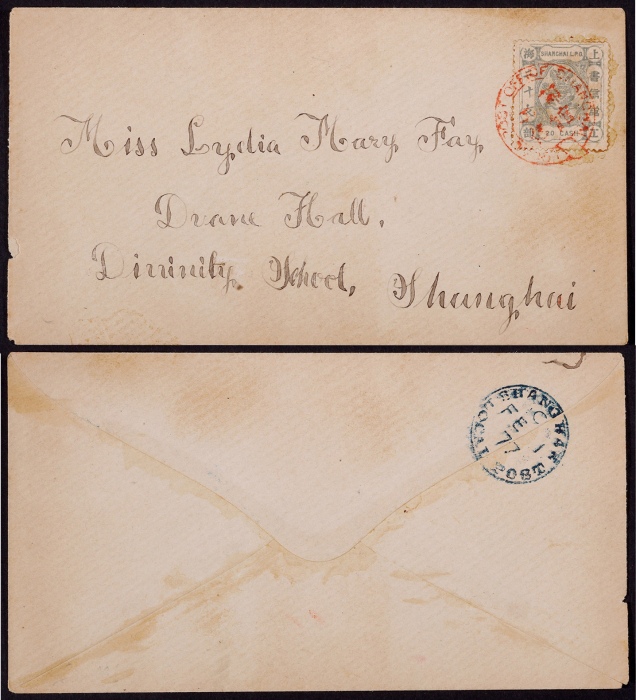 SHANGHAI L.P.O.
上海
20 CASH
Miss Lydia Mary Fay
Duane Hall,
Divinity School, Shanghai
SHANGHAI LOCAL POST
C
FE 1
77